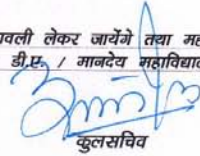 ावली लेकर जायेंगे तथा मह
डी.ए. / मानदेय महाविद्याल
कुलसचिव